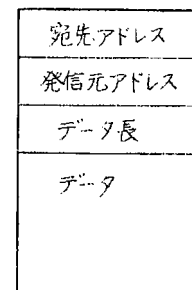 宛先アドレス
発信元アドレス
データ長
データ